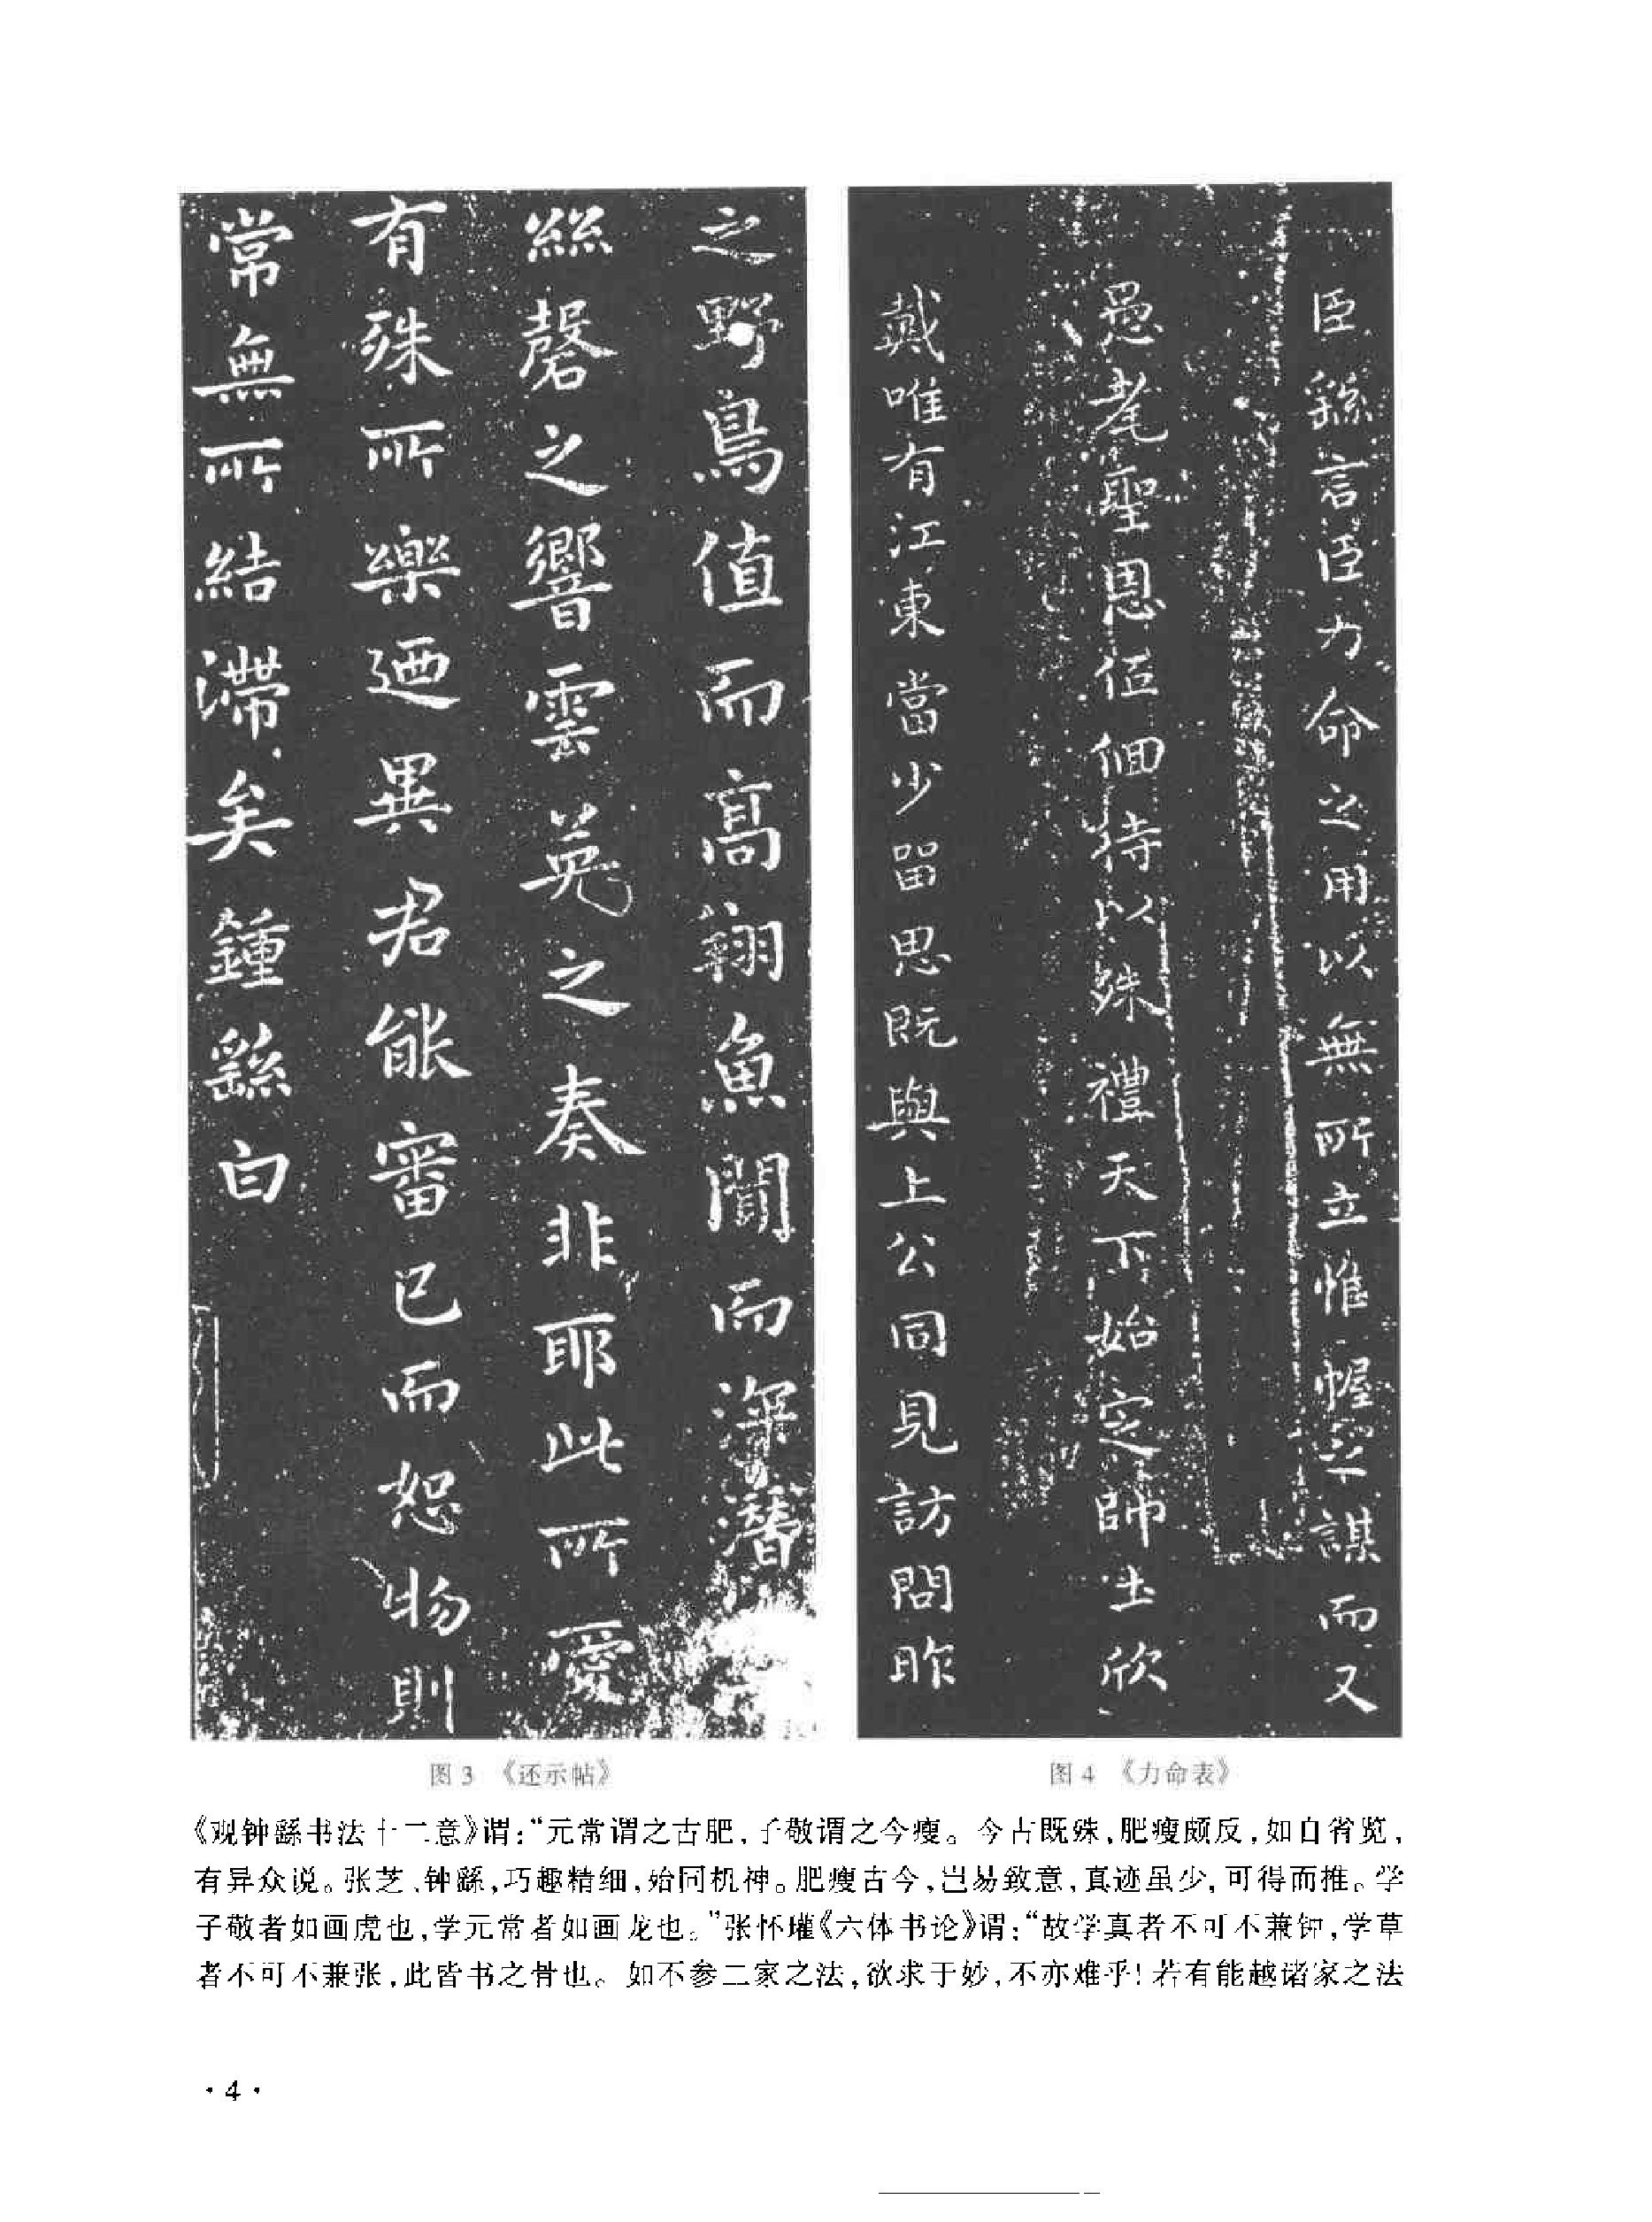 之野鳥值而高翔魚聞而深潛
絲磬之響雲英之奏非耶此所愛
有殊所樂廼異君能審己而恕物則
常無所結滯矣鍾繇白
臣繇言臣力命之用以無所立惟幄之謀而又
愚耄聖恩低佪待以殊禮天下始定帥土欣
戴唯有江東當少留思既與上公同見訪問昨
图 3 《还示帖》
图 4 《力命表》
《观钟繇书法十二意》谓:“元常谓之古肥,子敬谓之今瘦。今古既殊,肥瘦颇反,如自省览,
有异众说。张芝、钟繇,巧趣精细,殆同机神。肥瘦古今,岂易致意,真迹虽少,可得而推。学
子敬者如画虎也,学元常者如画龙也。”张怀瓘《六体书论》谓:“故学真者不可不兼钟,学草
者不可不兼张,此皆书之骨也。如不参二家之法,欲求于妙,不亦难乎!若有能越诸家之法
·4·